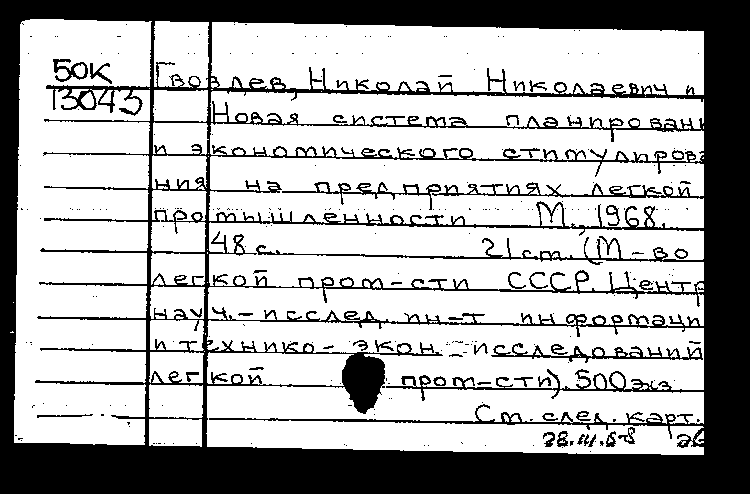 БОК
13043
Гвоздев, Николай Николаевич и
Новая система планирован
и экономического стимулирова
ния на предприятиях легкой
промышленности М., 1968.
48 с. 21 см. (М-во
легкой пром-сти СССР. Центр
науч.-исслед. ин-т информаци
и технико-экон. исследований
легкой пром-сти). 500 экз
См. след. карт.